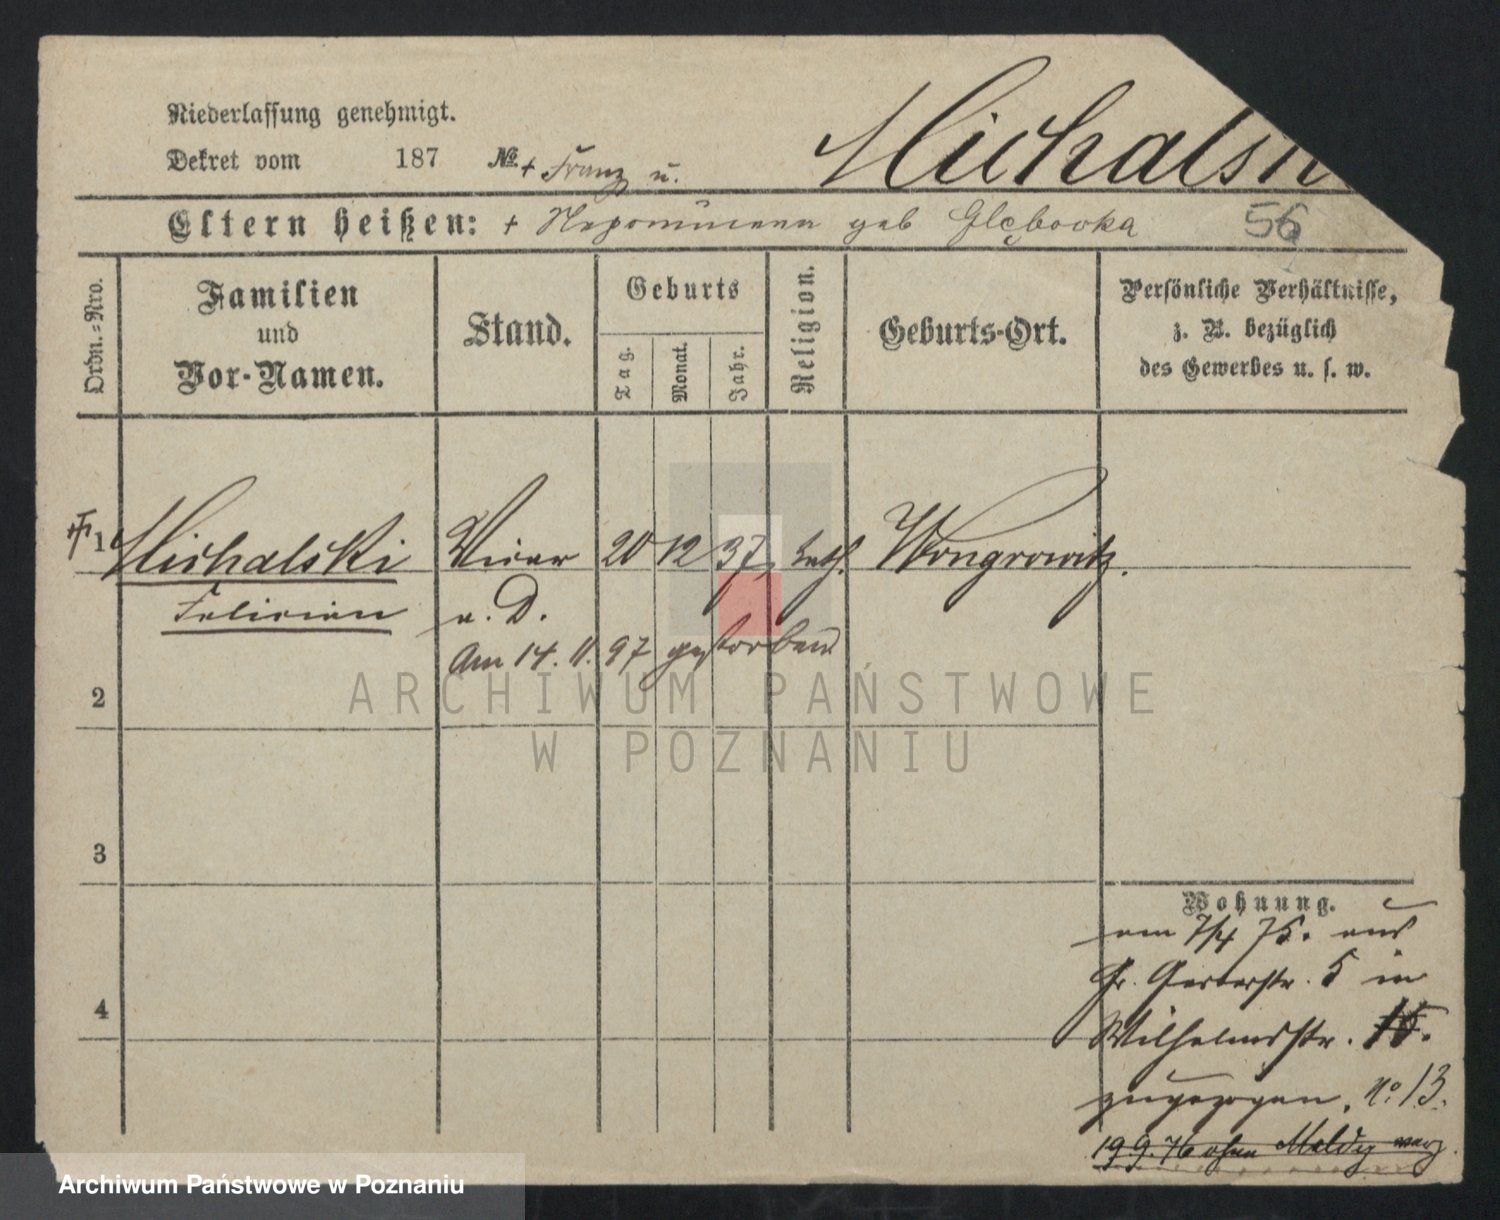 Niederlassung genehmigt.
Dekret vom 187 № + Franz u.
Michalski
Eltern heißen: + Nepomucena geb Głębocka 56
Ordn.-Nro.
Familien
und
Vor-Namen.
Stand.
Geburts
Tag.
Monat.
Jahr.
Religion.
Geburts-Ort.
Persönliche Verhältnisse,
z. B. bezüglich
des Gewerbes u. s. w.
1 Michalski Vicar 20 12 37 kath. Wongrowitz.
Felician a. D.
Am 14. 11. 97 gestorben
2
3
4
Wohnung.
am 7/4 75. aus
Gr. Gerberstr. 5 in
Wilhelmstr. 15.
zugezogen. No 13.
19.9.76 ohne Meldg warz
ARCHIWUM PAŃSTWOWE
W POZNANIU
Archiwum Państwowe w Poznaniu